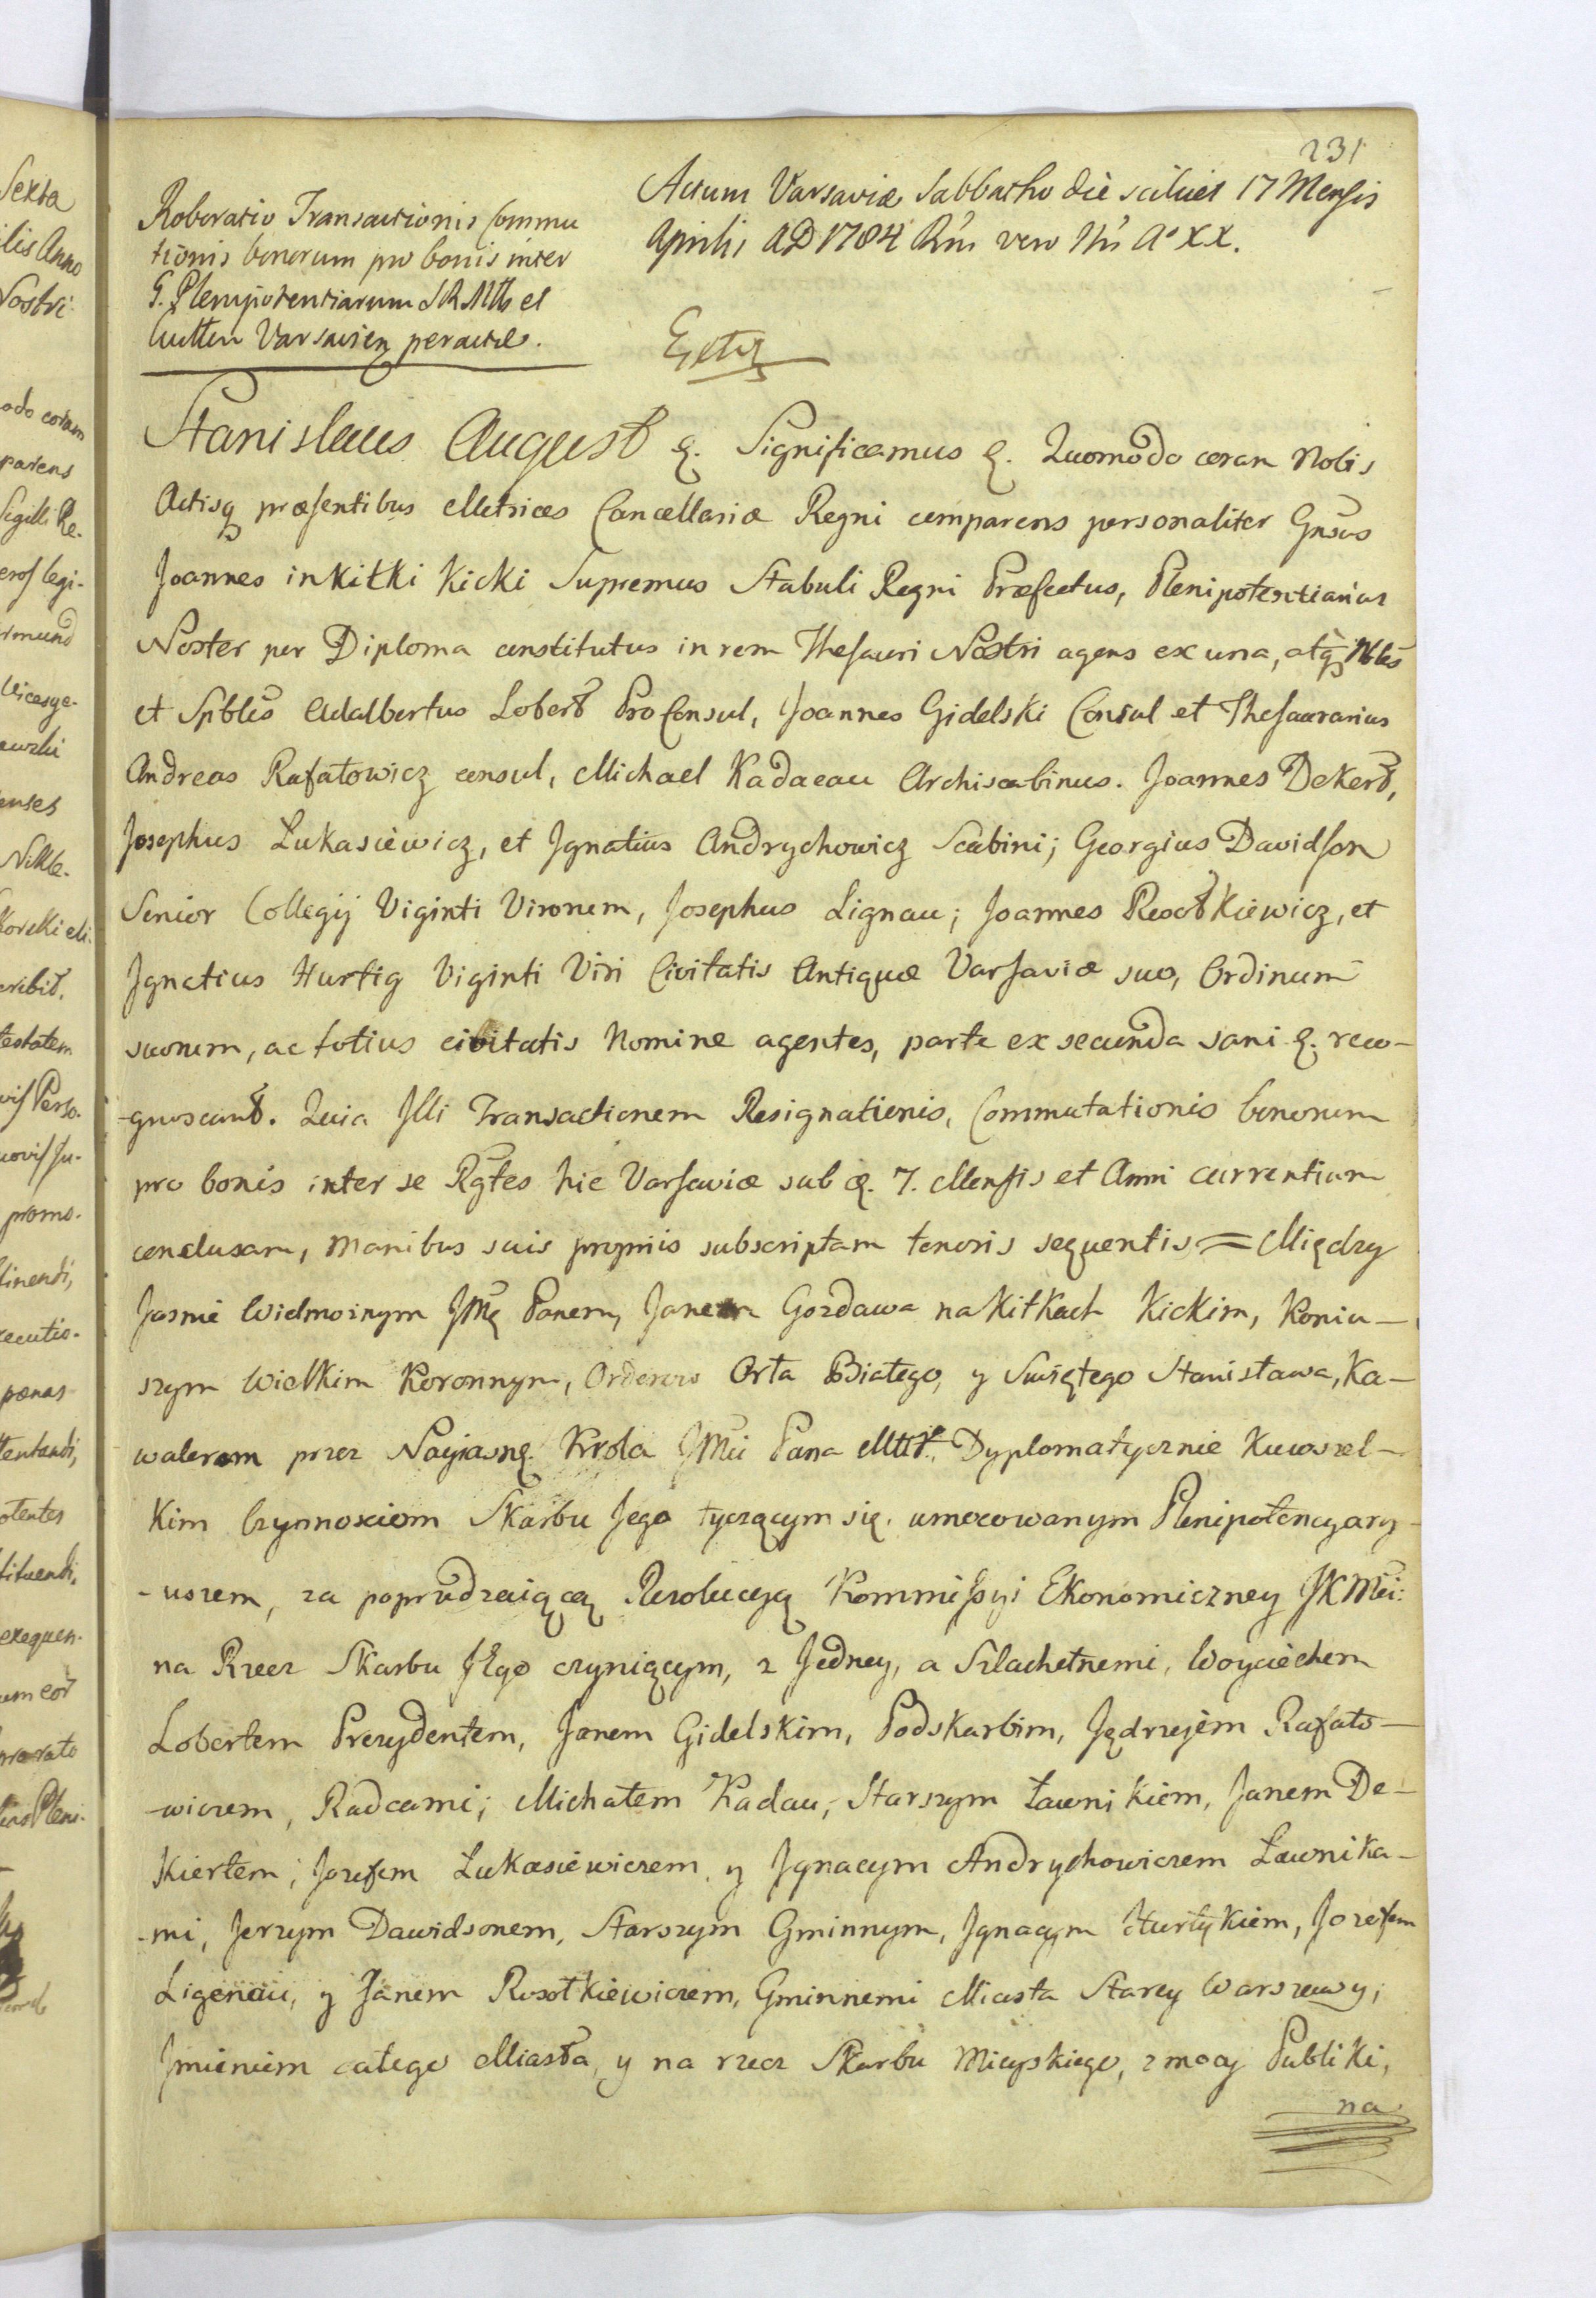 231
Roboratio Transactionis Commu
tionis bonorum pro bonis inter
G. Plenipotentiarum SRMtis et
Varsavien peractae.
Actum Varsaviæ Sabbatho die scilicet 17 Mensis
Aprilis AD 1784 Rni vero Nri A° XX.
Stanislaus August &. Significamus &. Quomodo coram Nobis
Actisq præsentibus Metrices Cancellariæ Regni comparens personaliter Gnsus
Joannes in Kitki Kicki Supremus Stabuli Regni Præfectus, Plenipotentiarius
Noster per Diploma constitutus in rem Thesauri Nostri agens ex una, atq Nbles
et Spbles Adalbertus Lobert ProConsul, Joannes Gidelski Consul et Thesaurarius
Andreas Rafałowicz consul, Michael Kadaeau Archiscabinus. Joannes Dekert,
Josephus Łukasiewicz, et Ignatius Andrychowicz Scabini; Georgius Davidson
Senior Collegij Viginti Virorum, Josephus Lignau; Joannes Rosotkiewicz, et
Ignatius Hurtig Viginti Viri Civitatis Antiquæ Varsaviæ suo, Ordinum
suorum, ac totius civitatis Nomine agentes, parte ex secunda sani &. reco-
-gnoscunt. Quia Illi Transactionem Resignationis, Commutationis bonorum
pro bonis inter se Rgtes hic Varsaviæ sub &. 7. Mensis et Anni currentium
conclusam, Manibus suis propriis subscriptam tenoris sequentis = Między
Jasnie Wielmoznym JMę Panem, Janem Gozdawa na Kitkach Kickim, Koniu-
szym Wielkim Koronnym, Orderow Orła Białego, y Swiętego Stanisława, Ka-
walerem przez Nayiasnę. Krola JMci Pana Dyplomatycznie Kuwszel-
Kim Czynnosciom Skarbu Jego tyczącym się. umocowanym Plenipotencyary-
-uszem, za poprzedzaiącą Rezolucyą Kommissyi Ekonomiczney JKMci:
na Rzecz Skarbu Jego czyniącym, z Jedney, a Szlachetnemi, Woyciechem
Lobertem Prezydentem, Janem Gidelskim, Podskarbim, Jędrzejem Rafało-
-wiczem, Radcami; Michałem Kadau, Starszym Ławnikiem, Janem De-
Kiertem; Jozefem Łukasiewiczem y Ignacym Andrychowiczem Ławnika-
-mi, Jerzym Dawidsonem, Starszym Gminnym, Ignacym Hurtykiem, Jozefem
Ligenau, y Janem Rosotkiewiczem, Gminnemi Miasta Starey Warszawy;
Jmieniem całego Miasta, y na rzecz Skarbu Mieyskiego, z mocy Publiki,
na